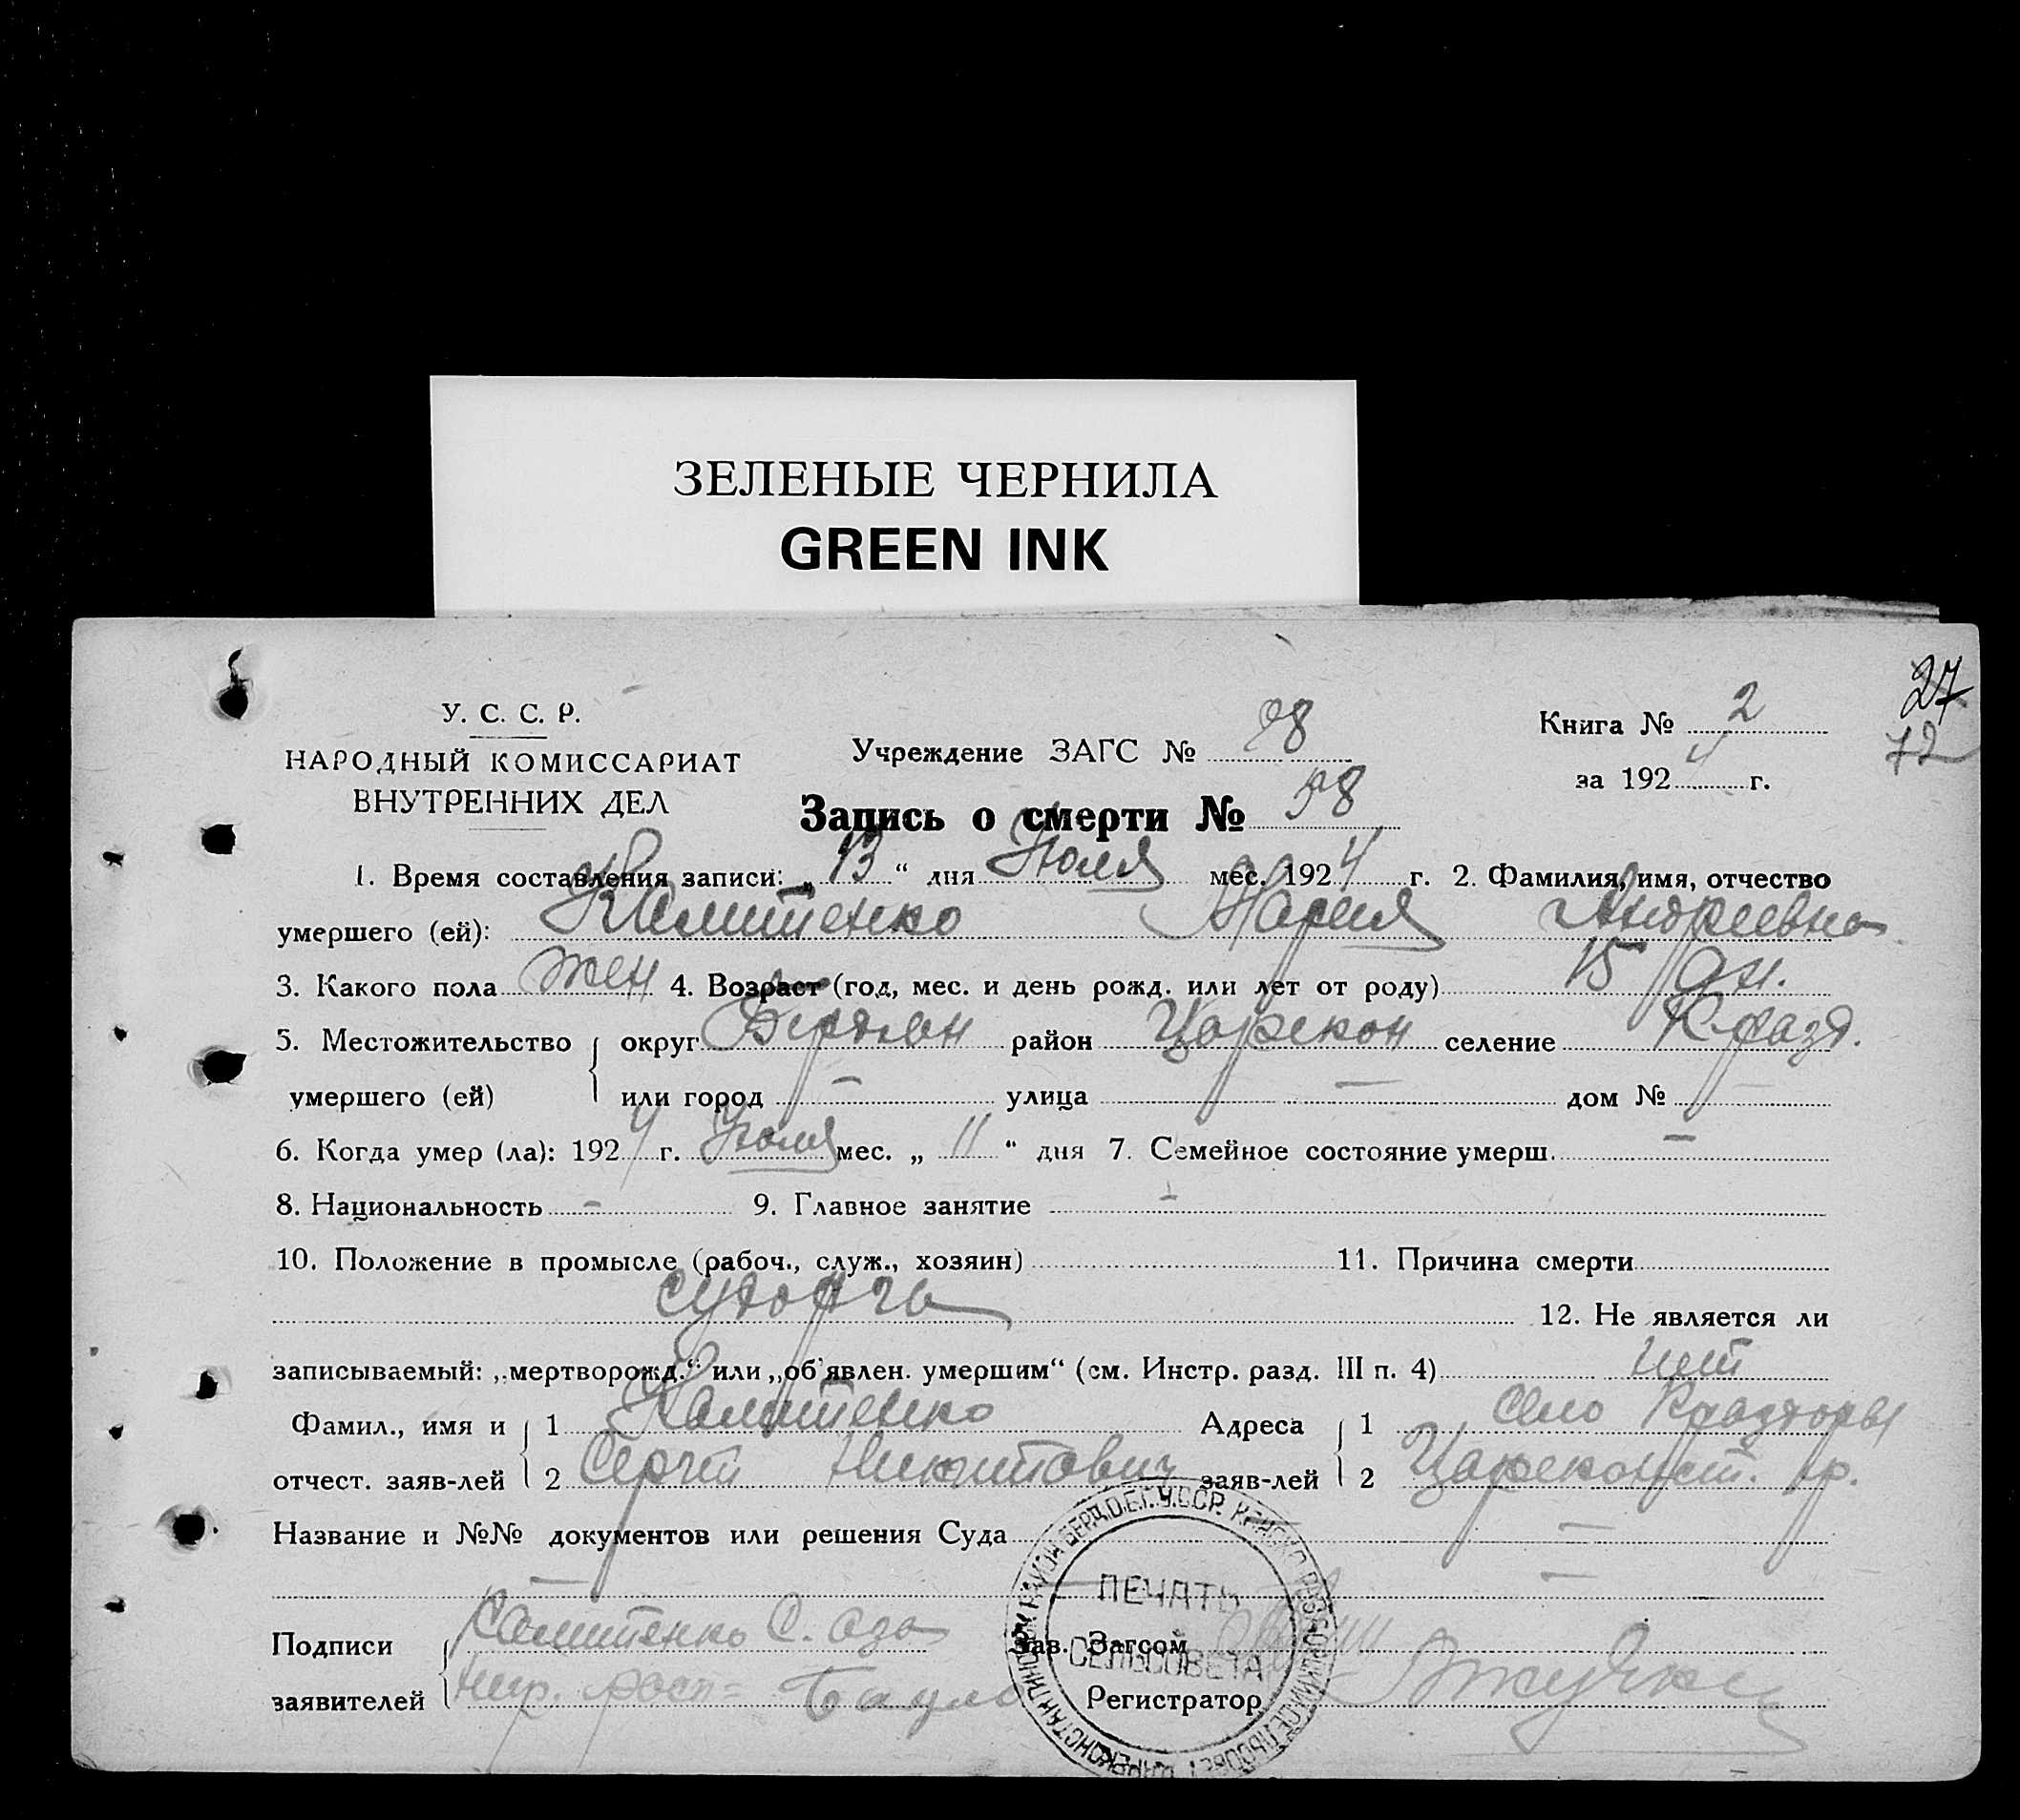 ЗЕЛЕНЫЕ ЧЕРНИЛА
GREEN INK
27
72
У. С. С. Р.
НАРОДНЫЙ КОМИССАРИАТ
ВНУТРЕННИХ ДЕЛ
Учреждение ЗАГС № 98
Книга № 2
за 1924 г.
Запись о смерти № 58
1. Время составления записи: „13“ дня Июля мес. 1924 г. 2. Фамилия, имя, отчество
умершего (ей): Калитенко Мария Андреевна
3. Какого пола жен 4. Возраст (год, мес. и день рожд. или лет от роду) 15 дн.
5. Местожительство округ Бердян район Царекон селение К-разд.
умершего (ей) или город — улица — дом № —
6. Когда умер (ла): 1924 г. Июля мес. „11“ дня 7. Семейное состояние умерш. —
8. Национальность - 9. Главное занятие -
10. Положение в промысле (рабоч., служ., хозяин) 11. Причина смерти
судорга 12. Не является ли
записываемый: „мертворожд.“ или „об'явлен. умершим“ (см. Инстр. разд. III п. 4) нет
Фамил., имя и 1 Калитенко Адреса 1 село Кразторы
отчест. заяв-лей 2 Сергей Никитович заяв-лей 2 Цареконст. р.
Название и №№ документов или решения Суда —
— —
Подписи Калитенко С. аза Зав. Загсом
заявителей Регистратор
ПЕЧАТЬ
СЕЛЬСОВЕТА